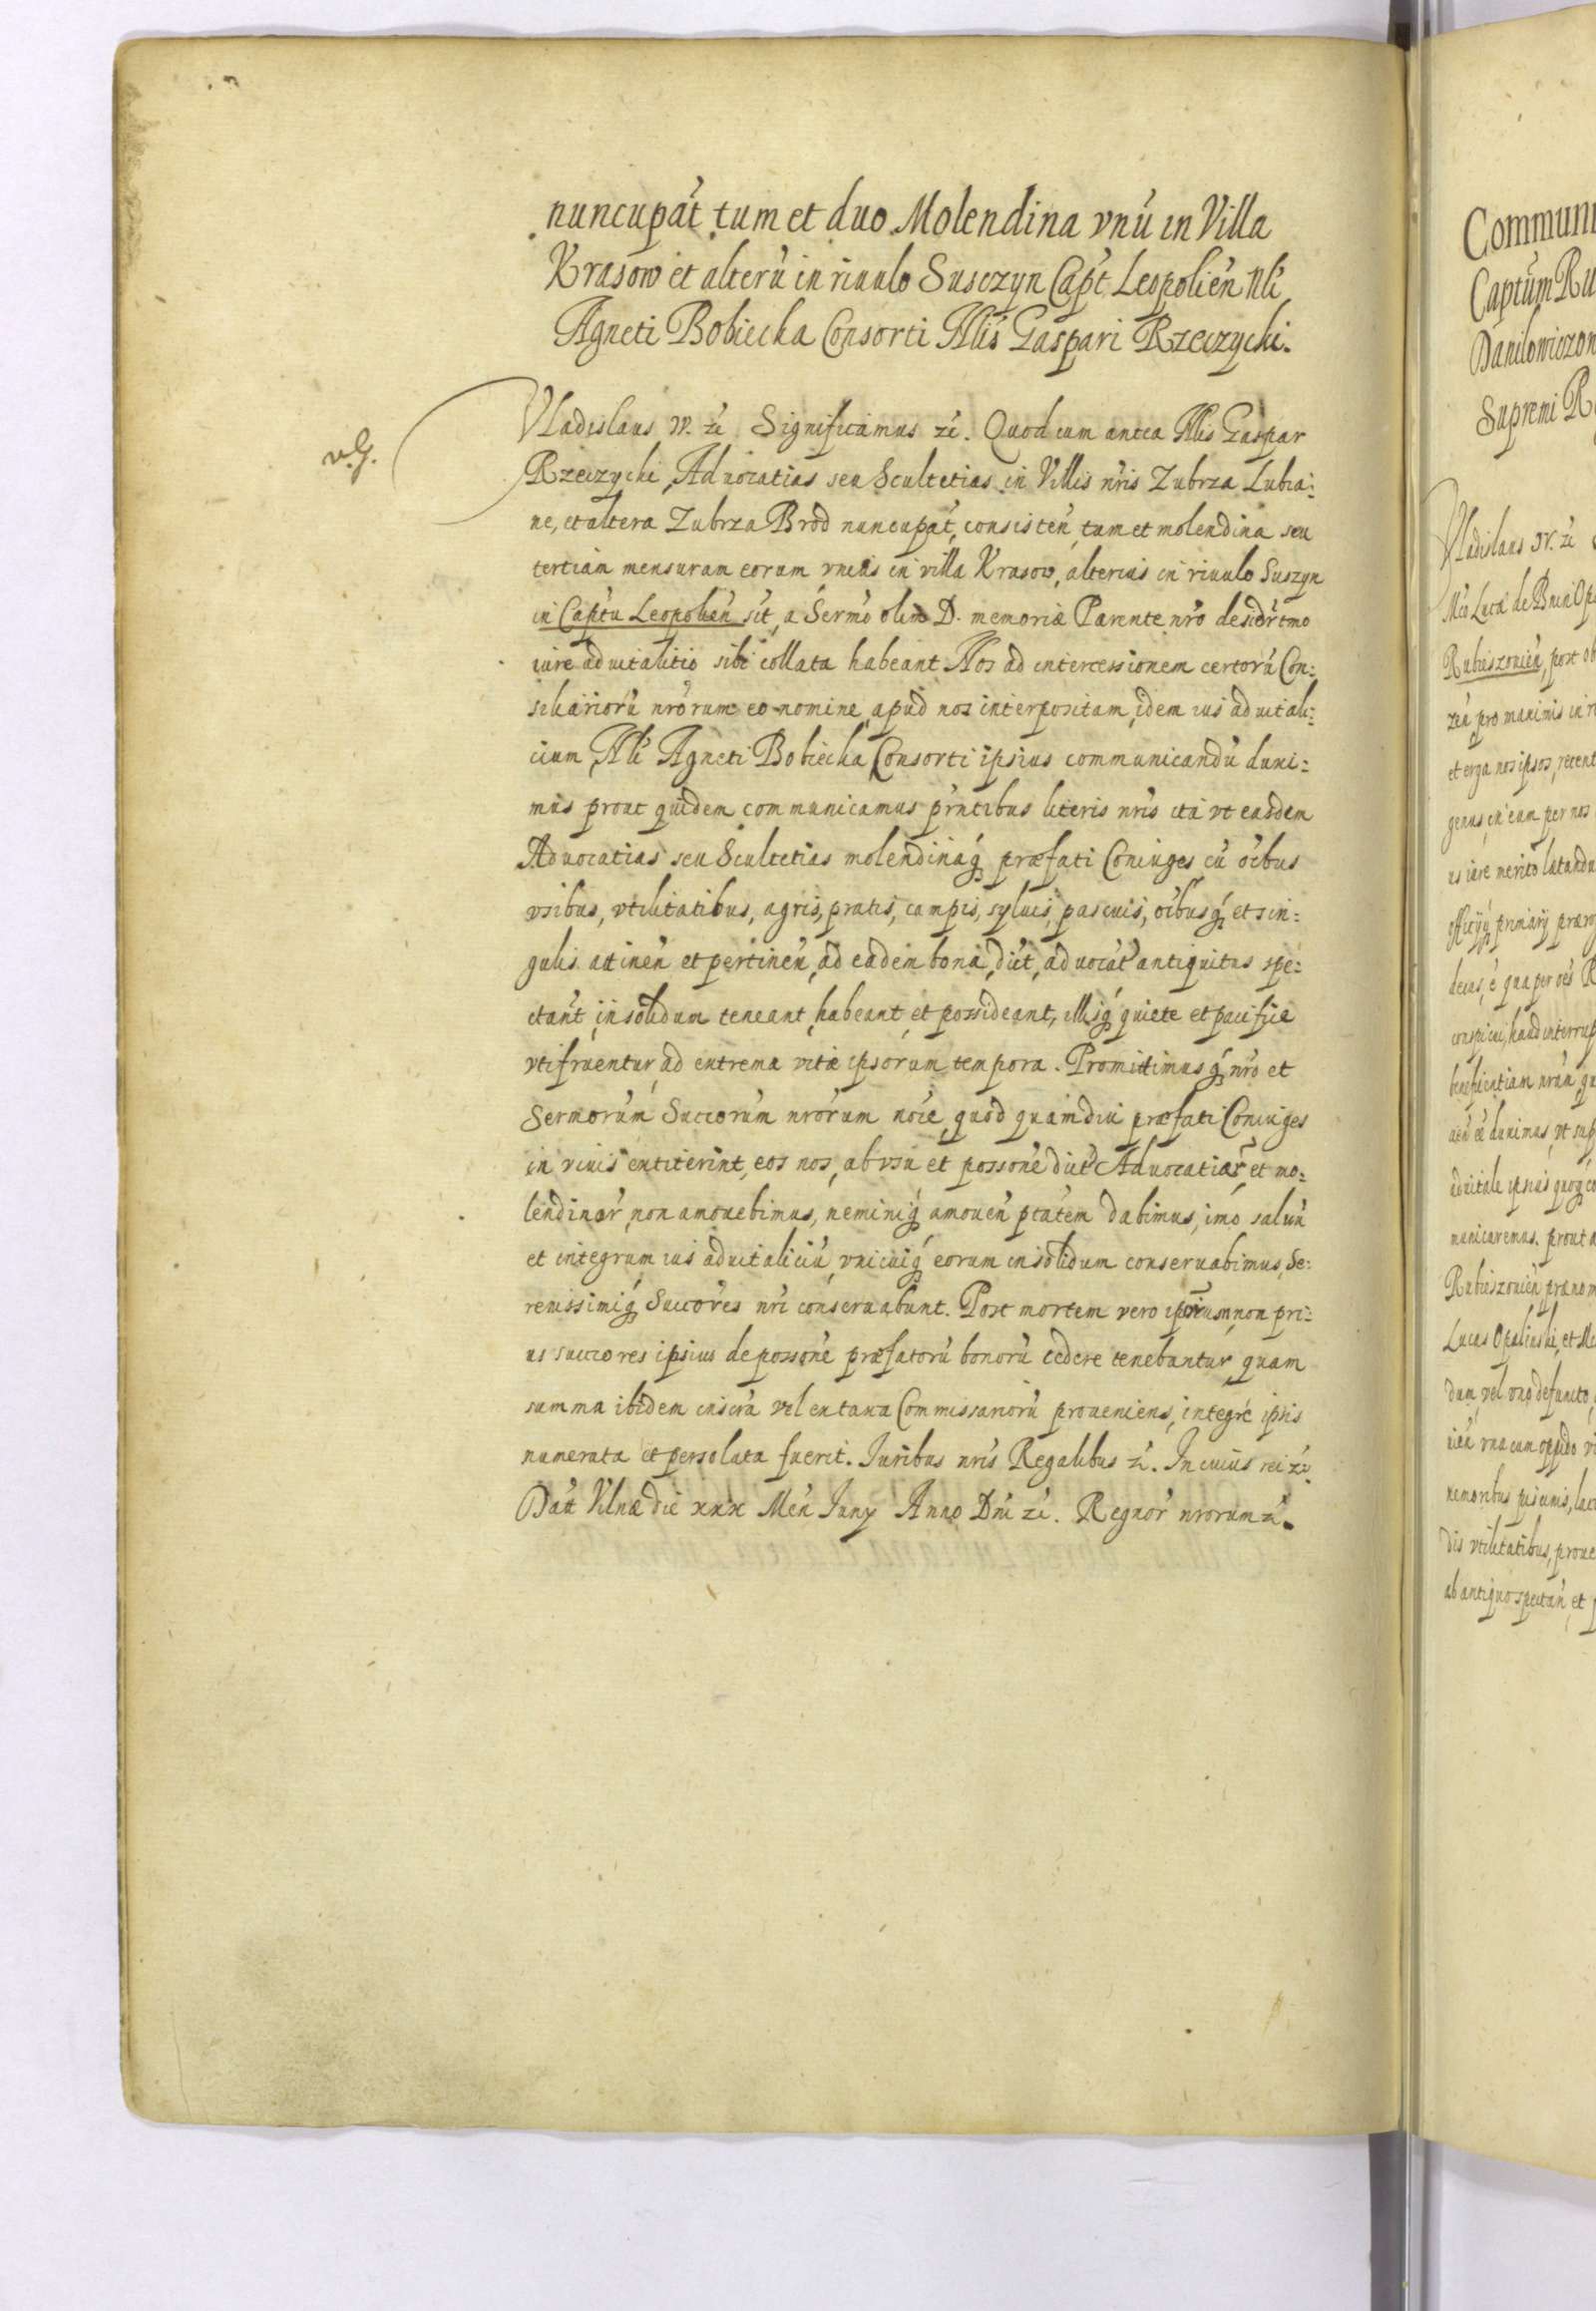 nuncupat́ tum et duo Molendina vnú in Villa
Krasow et alterú in riuulo Susczyn Capt́ Leopolień Nli
Agneti Bobiecka Consorti Nlis Gaspari Rzeczycki.
v.g.
Vladislaus IV. zć Significamus zć. Quod cum antea Nlis Gaspar
Rzeczycki Aduocatias seu Scultetias in Villis nris Zubrza Lubia:
ne, et altera Zubrza Brod nuncupat́, consisteń, tum et molendina seu
tertiam mensuram eorum vnius in villa Krasow, alterius in riuulo Suszyn
in Captu Leopolień sit, a Sermo olim D. memoriæ Parente nro desidrtmo
iure aduitalitio sibi collata habeant Nos ad intercessionem certorú Con:
siliariorú nrorum eo nomine apud nos interpositam, idem ius aduitali:
cium Nli Agneti Bobiecka Consorti ipsius communicandú duxi:
mus prout quidem communicamus prntibus literis nris ita vt easdem
Aduocatias seu Scultetias molendinaq́ præfati Coniuges cú oibus
vsibus, vtilitatibus, agris, pratis, campis, syluis, pascuis, oibusq́ et sin:
gulis attineń et pertineń, ad eadem bona, dict, aduocat́ antiquitus spe:
ctant́ in solidum teneant, habeant et possideant, illisq́ quiete et pacifice
vtifruentur, ad extrema vitæ ipsorum tempora. Promittimusq́ nro et
Sermorum Succorum nrorum noie, quod quamdiu præfati Coniuges
in viuis extiterint, eos nos, ab vsu et possone dict́ Aduocatiar et mo:
lendinor non amouebimus, neminiq́ amoueń ptatem dabimus, imo saluú
et integrum ius aduitaliciú, vnicuiq́ eorum in solidum conseruabimus, Se:
renissimiq́ Succores nri conseruabunt. Post mortem vero ipsorum, non pri:
us succores ipsius de possone præfatorú bonorú cedere tenebuntur, quam
summa ibidem inscra vel ex taxa Commissariorú proueniens, integre ipsis
numerata et persoluta fuerit. Iuribus nris Regalibus zć. In cuius rei zć.
Dat́ Vilnæ die xxx Meń Iuny Anno Dni zć. Regnor nrorum zć.
Communi
Captum Ru
Danilowiczon
Supremi R
Vladislaus IV. zć
Mco Luca de Bnin Op
Rubieszouień, post ob
et erga nos ipsos, recent
geans, in eam per nos
us iure merito lætandu
officijq́ primarij prærog
decus, é qua per oes R
conspicui, haud interrup
beneficentiam nram qu
aduitale ipsius quoq́ co
municaremus. prout a
Rubieszouień præno m
Lucas Opalinski, et Ma
dum, vel vno defuncto,
uień vna cum oppido vi
nemoribus piscinis, lacu
dis vtilitatibus, proue
ab antiquo spectań, et p